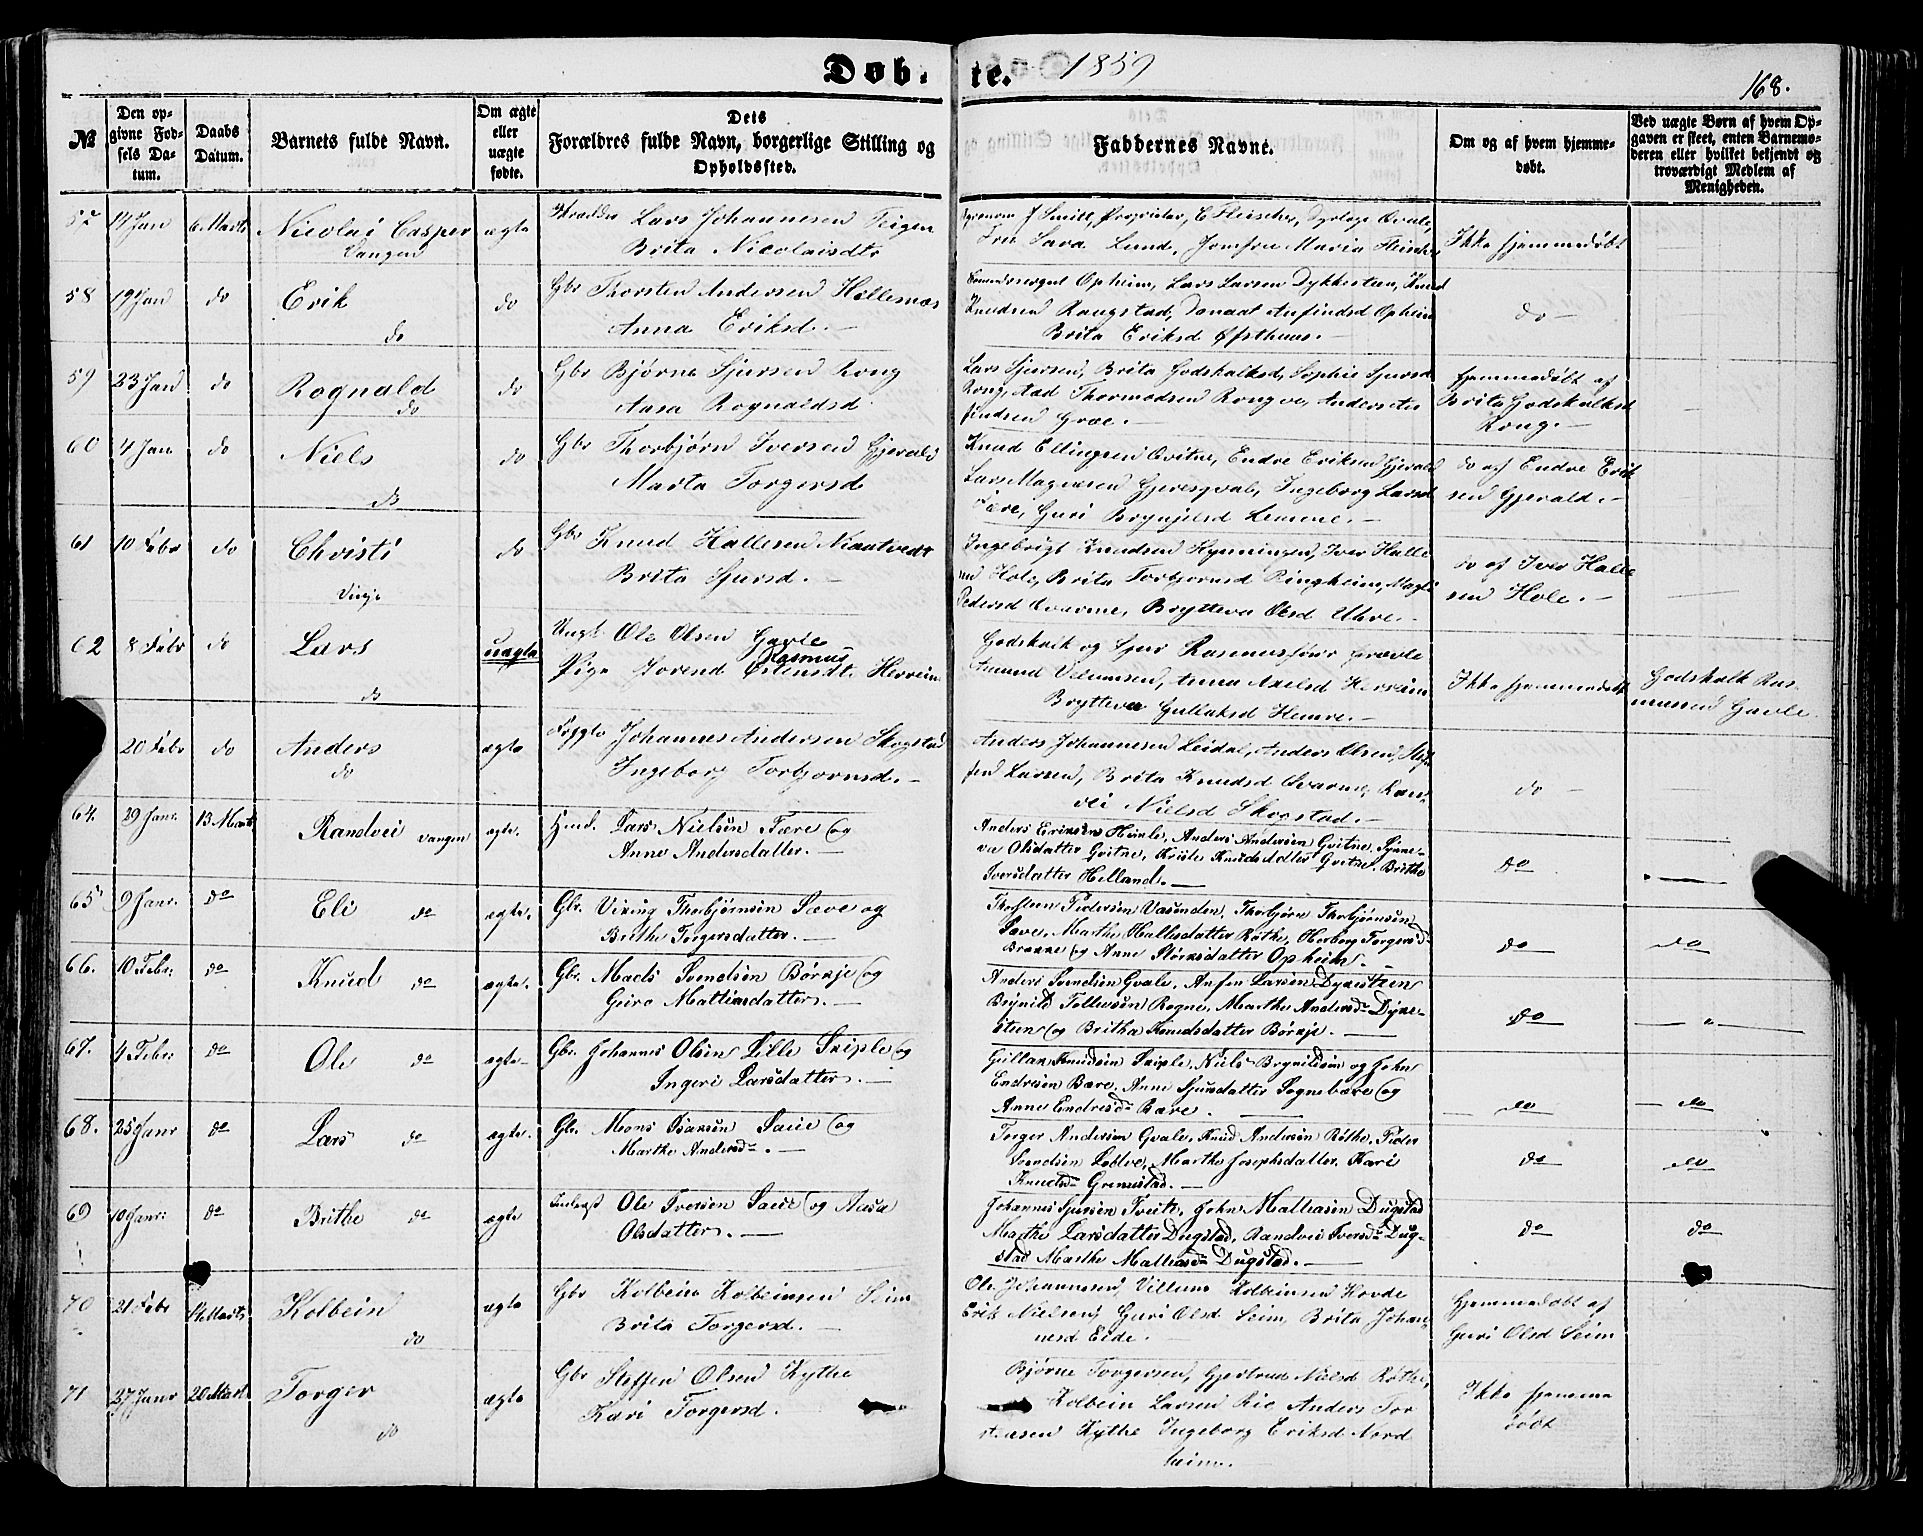 Døb- te. 1859
168.
№
Den opgivne Fødsels Datum.
Daabs Datum.
Barnets fulde Navn.
Om ægte eller uægte fødte.
Dets Forældres fulde Navn, borgerlige Stilling og Opholdssted.
Faddernes Navne.
Om og af hvem hjemmedøbt.
Ved uægte Børn af hvem Opgaven er skeet, enten Barnemoderen eller hvilket bekjendt og troværdigt Medlem af Menigheden.
57 14 Jan 6 Marts Nicolai Casper ægte Lars Johannesen Teigen
Vangen Brita Nicolaisdtr
J Smitt, Proprietær, E Fleischer, Dyrlæge Qvale,
Fru Sara Lund, Jomfru Maria Fleischer
Ikke hjemmedøbt
58 19 Jan do Erik do Gbr Thorsten Andersen Hellesnæs
do Anna Eriksd. —
Opheim, Lars Larsen Dykkesteen, Knud
Knudsen Rongstad, Anfindsd Opheim
Brita Eriksd Øfsthuus. —
do —
59 23 Jan do Rognald do Gbr Bjørne Sjursen Rong
do Aasa Rognaldsd
Lars Sjursen, Brita Godskalksd, Sophie Sjursd
Rong, Aad Thormodsen Rongve, Anders An
findsen Græe. —
Hjemmedøbt af
Brita Godskalksd
Rong. —
60 4 Jan do Niels do Gbr Thorbjørn Iversen Gjerald
do Marta Torgersd
Knud Ellingsen Qvitne, Endre Eriksen Gjerald
Lars Magnesen Ingeborg Larsd
Fære, Guri Brynjelsd Lemme. —
do af Endre Erik
sen Gjerald. —
61 10 Febr do Christi do Gbr Knud Hallesen
Vinje Brita Sjursd. —
Ingebrigt Knudsen Iver Halle
sen Hole, Brita Torbjørnsd Ringheim,
Pedersd Brytteva Olsd Uhre. —
do af Iver Halle
sen Hole. —
62 8 Febr do Lars uægte Ungk. Ole Olsen Gavle
Rasmus
do Pige Jorend Herreim
Godskalk og Sjur
Amund Anna Axelsd Herreim
Brytteva Gullaksd Hemre. —
Ikke hjemmedøbt
Godskalk Ras
musen Gavle.
20 Febr do Anders ægte Johannes Andersen Skogstad
do Ingeborg Torbjørnsd. —
Anders Johannesen Leidal, Anders Olsen,
Larsen, Brita Knudsd Ran
vei Nielsd Skogstad. —
do —
64. 29 Janr. 13 Marts Randvei Vangen ægte. Hmd. Lars Nielsen Fære og
Anne Andersdatter. —
Anders Eriksen Himle, Anders Andersen Gvitne, Synne-
va Olsdatter Gvitne, Kristi Knudsdatter Gvitne, Brithe
Iversdatter Helland. —
do
65 9 Janr. do Eli do ægte. Gbr. Viking Thorbjørnsen Sæve og
Brithe Torgersdatter. —
Thorsteen Pedersen Vasenden, Thorbjørn Thorbjørnsen
Sæve, Marthe Hallesdatter Røthe, Herborg Torgersd
Brekke og Anne Størksdatter Opheim. —
do do
66. 10 Febr. do Knud do ægte. Gbr. Mads Svendsen Børkje og
Guro Mathiasdatter. —
Anders Svendsen Gvale, Anfin Larsen Dykesteen
Brynild Tollevsen Rogne, Marthe Andersd Dyke-
steen og Britha Knudsdatter Børkje. —
do — " —
67. 4 Febr. do Ole do ægte. Gbr. Johannes Olsen Lille Skiple og
Ingeri Larsdatter. —
Gullak Knudsen Skiple, Niels Brynildsen og John
Endresen Bære. Anne Sjursdatter Sognebære og
Anne Endresd Bære. —
do do
68. 25 Janr do Lars do ægte. Gbr. Mons Isaksen Saue og
Marthe Andersd. —
Torger Andersen Gvale, Knud Andersen Røthe, Peder
Svendsen Lødve, Marthe Josephsdatter, Kari
Knudsd Grimestad. —
do do
69 10 Janr: do Brithe do ægte Inderst Ole Iversen Saue og Aasa
Olsdatter. —
Johannes Sjursen Tveite, John Mathiasen Dugstad
Marthe Larsdatter Dugstad, Randvei Iversd Dug-
stad Marthe Mathiasd Dugstad. —
do do
70 21 Febr 14 Marts Kolbein ægte Gbr Kolbein Kolbeinsen Seim
do Brita Torgersd. —
Ole Johannesen, Villum Kolbeinsen Hovde
Erik Nielsen, Guri Olsd Seim, Brita Johan
nesd Eide. —
Hjemmedøbt af
Guri Olsd Seim
71 27 Janr 20 Marts Torger ægte Gbr Steffen Olsen Kythe
do Kari Torgersd.
Bjørne Torgersen, Gjertrud Nielsd Røthe,
Kolbein Larsen Rie Anders Tor
stensen Kythe Ingeborg Eriksd Nord
heim. —
Ikke hjemme
døbt